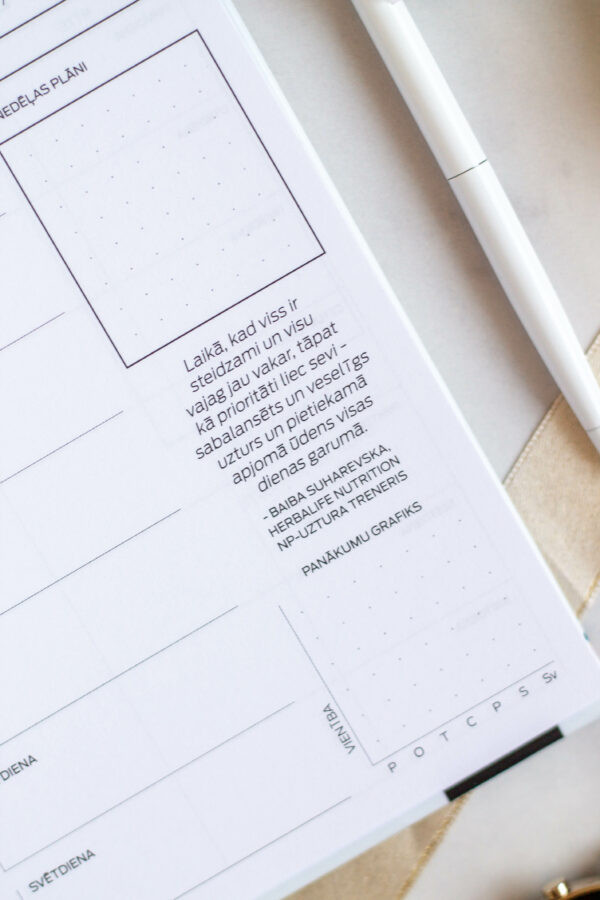 NEDĒĻAS PLĀNI
Laikā, kad viss ir
steidzami un visu
vajag jau vakar, tāpat
kā prioritāti liec sevi –
sabalansēts un veselīgs
uzturs un pietiekamā
apjomā ūdens visas
dienas garumā.
- BAIBA SUHAREVSKA,
HERBALIFE NUTRITION
NP-UZTURA TRENERIS
PANĀKUMU GRAFIKS
VIENTBA
P O T C P S Sv
DIENA
SVĒTDIENA